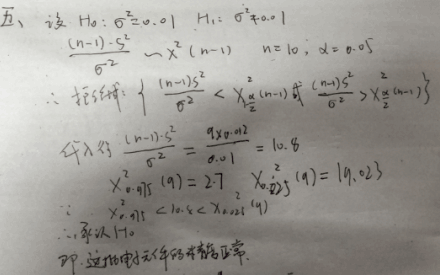 五、设 H₀: σ²=0.01 H₁: σ²≠0.01
(n-1)·S²/σ² ~ χ²(n-1) n=10, α=0.05
∴ 拒绝域: { (n-1)S²/σ² < χ²_{α/2}(n-1) 或 (n-1)S²/σ² > χ²_{α/2}(n-1) }
代入得 (n-1)·S²/σ² = 9×0.012/0.01 = 10.8
χ²_{0.975}(9)=2.7 χ²_{0.025}(9)=19.023
∵ χ²_{0.975} < 10.8 < χ²_{0.025}(9)
∴ 承认 H₀
即 这批电子元件的 正常.